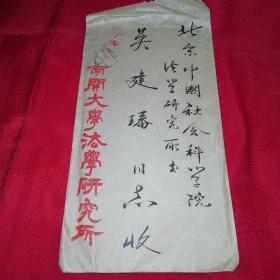 北京中國社会科学院
法学研究所
吴建璠同志收
南開大學法學研究所